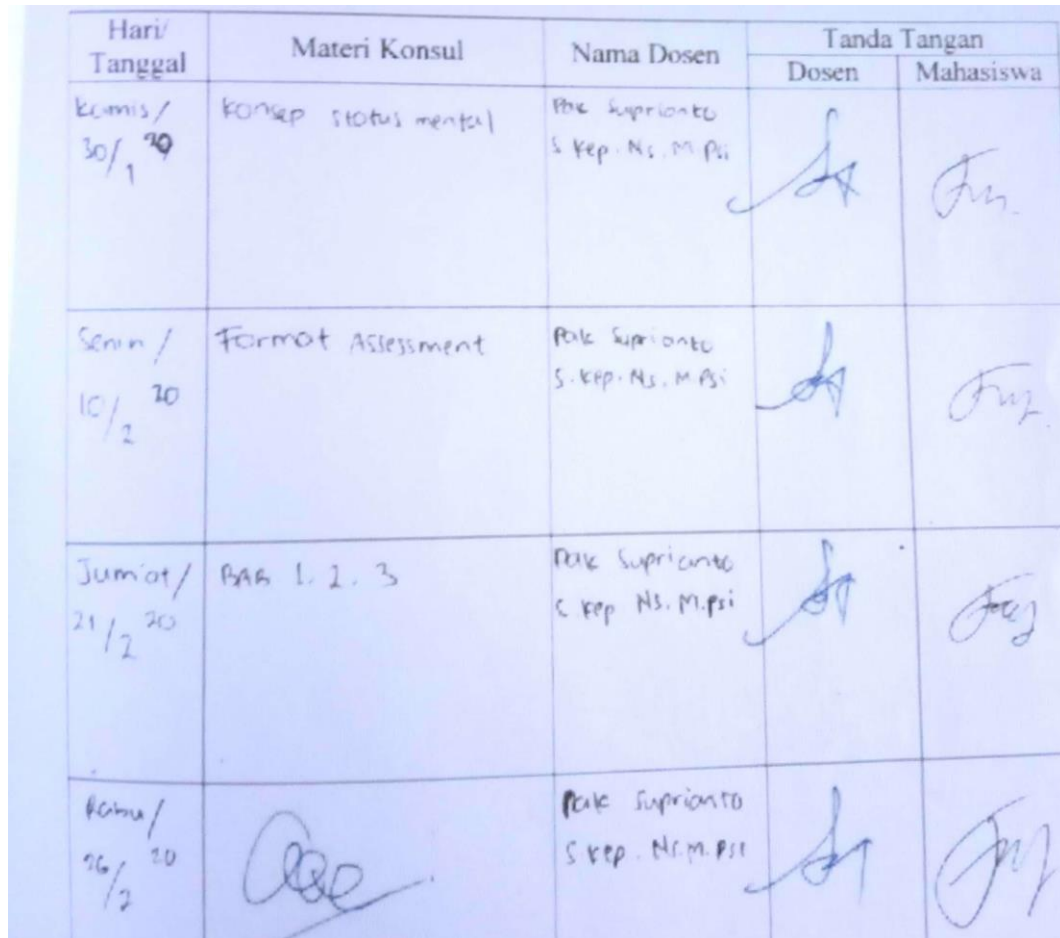 Hari/ Tanggal
Materi Konsul
Nama Dosen
Tanda Tangan
Dosen
Mahasiswa
Kamis/
30/1 20
Konsep status mental
Pak Suprianto
S.Kep.Ns.M.Psi
Senin/
10/2 20
Format Assessment
Pak Suprianto
S.Kep.Ns.M.Psi
Jum'at/
21/2 20
BAB 1. 2. 3
Pak Suprianto
S.Kep Ns.M.Psi
Rabu/
26/2 20
Pak Suprianto
S.Kep.Ns.M.Psi